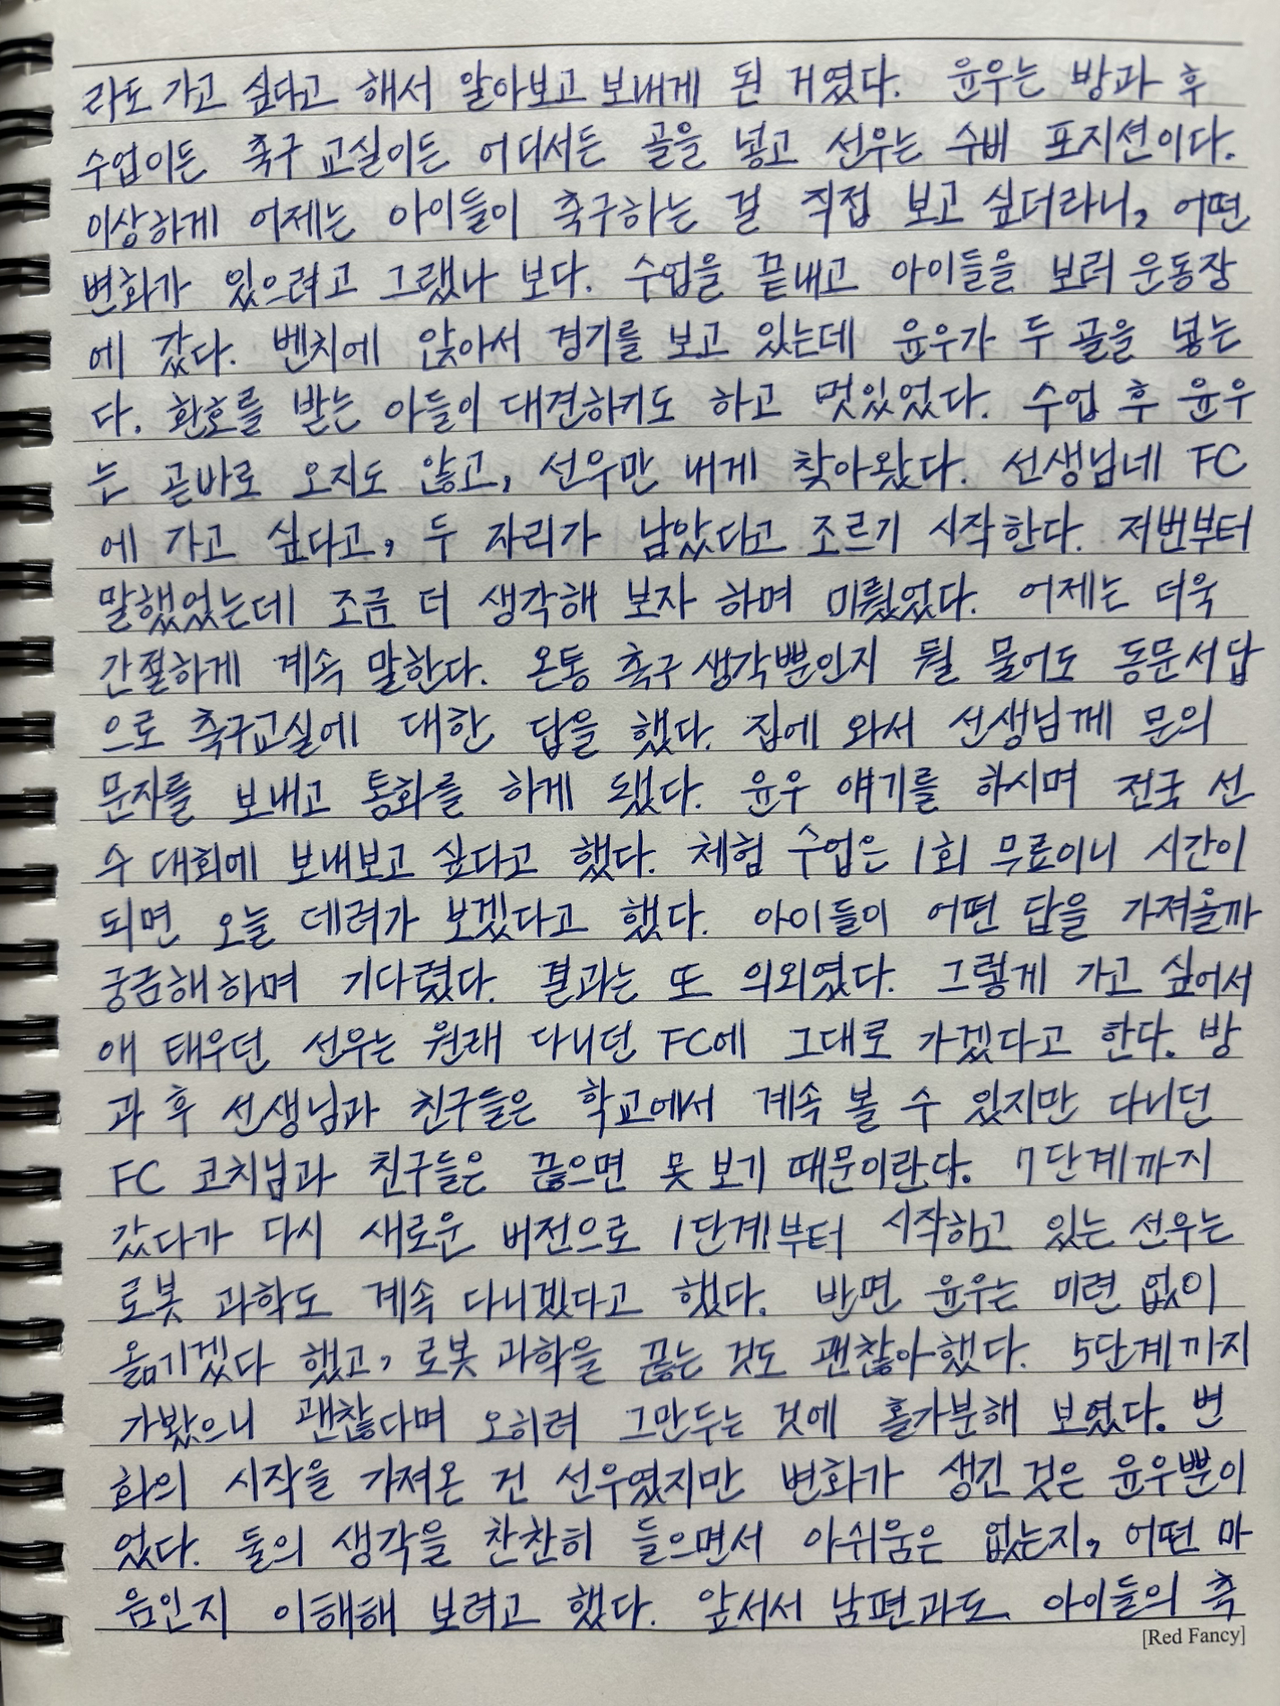 라도 가고 싶다고 해서 알아보고 보내게 된 거였다. 윤우는 방과 후
수업이든 축구 교실이든 어디서든 골을 넣고 선우는 수비 포지션이다.
이상하게 어제는 아이들이 축구하는 걸 직접 보고 싶더라니, 어떤
변화가 있으려고 그랬나 보다. 수업을 끝내고 아이들을 보러 운동장
에 갔다. 벤치에 앉아서 경기를 보고 있는데 윤우가 두 골을 넣는
다. 환호를 받는 아들이 대견하기도 하고 멋있었다. 수업 후 윤우
는 곧바로 오지도 않고, 선우만 내게 찾아왔다. 선생님네 FC
에 가고 싶다고, 두 자리가 남았다고 조르기 시작한다. 저번부터
말했었는데 조금 더 생각해 보자 하며 미뤘었다. 어제는 더욱
간절하게 계속 말한다. 온통 축구 생각뿐인지 뭘 물어도 동문서답
으로 축구교실에 대한 답을 했다. 집에 와서 선생님께 문의
문자를 보내고 통화를 하게 됐다. 윤우 얘기를 하시며 전국 선
수 대회에 보내보고 싶다고 했다. 체험 수업은 1회 무료이니 시간이
되면 오늘 데려가 보겠다고 했다. 아이들이 어떤 답을 가져올까
궁금해하며 기다렸다. 결과는 또 의외였다. 그렇게 가고 싶어서
애 태우던 선우는 원래 다니던 FC에 그대로 가겠다고 한다. 방
과 후 선생님과 친구들은 학교에서 계속 볼 수 있지만 다니던
FC 코치님과 친구들은 끊으면 못 보기 때문이란다. 7단계까지
갔다가 다시 새로운 버전으로 1단계부터 시작하고 있는 선우는
로봇 과학도 계속 다니겠다고 했다. 반면 윤우는 미련 없이
옮기겠다 했고, 로봇 과학을 끊는 것도 괜찮아했다. 5단계까지
가봤으니 괜찮다며 오히려 그만두는 것에 홀가분해 보였다. 변
화의 시작을 가져온 건 선우였지만 변화가 생긴 것은 윤우뿐이
었다. 둘의 생각을 찬찬히 들으면서 아쉬움은 없는지, 어떤 마
음인지 이해해 보려고 했다. 앞서서 남편과도 아이들의 축
[Red Fancy]